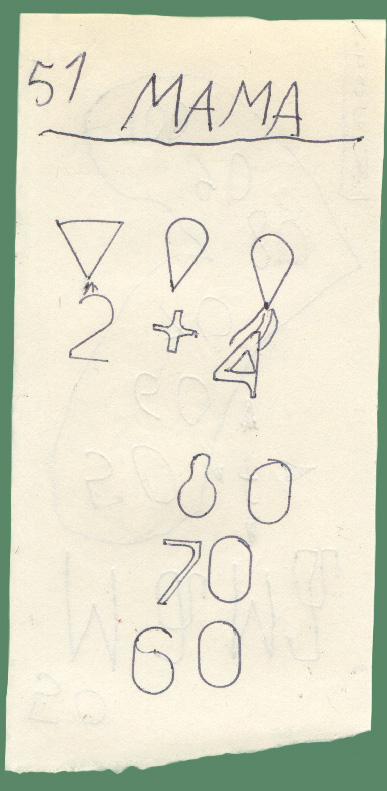 51 MAMA
2 + 4
80
70
60